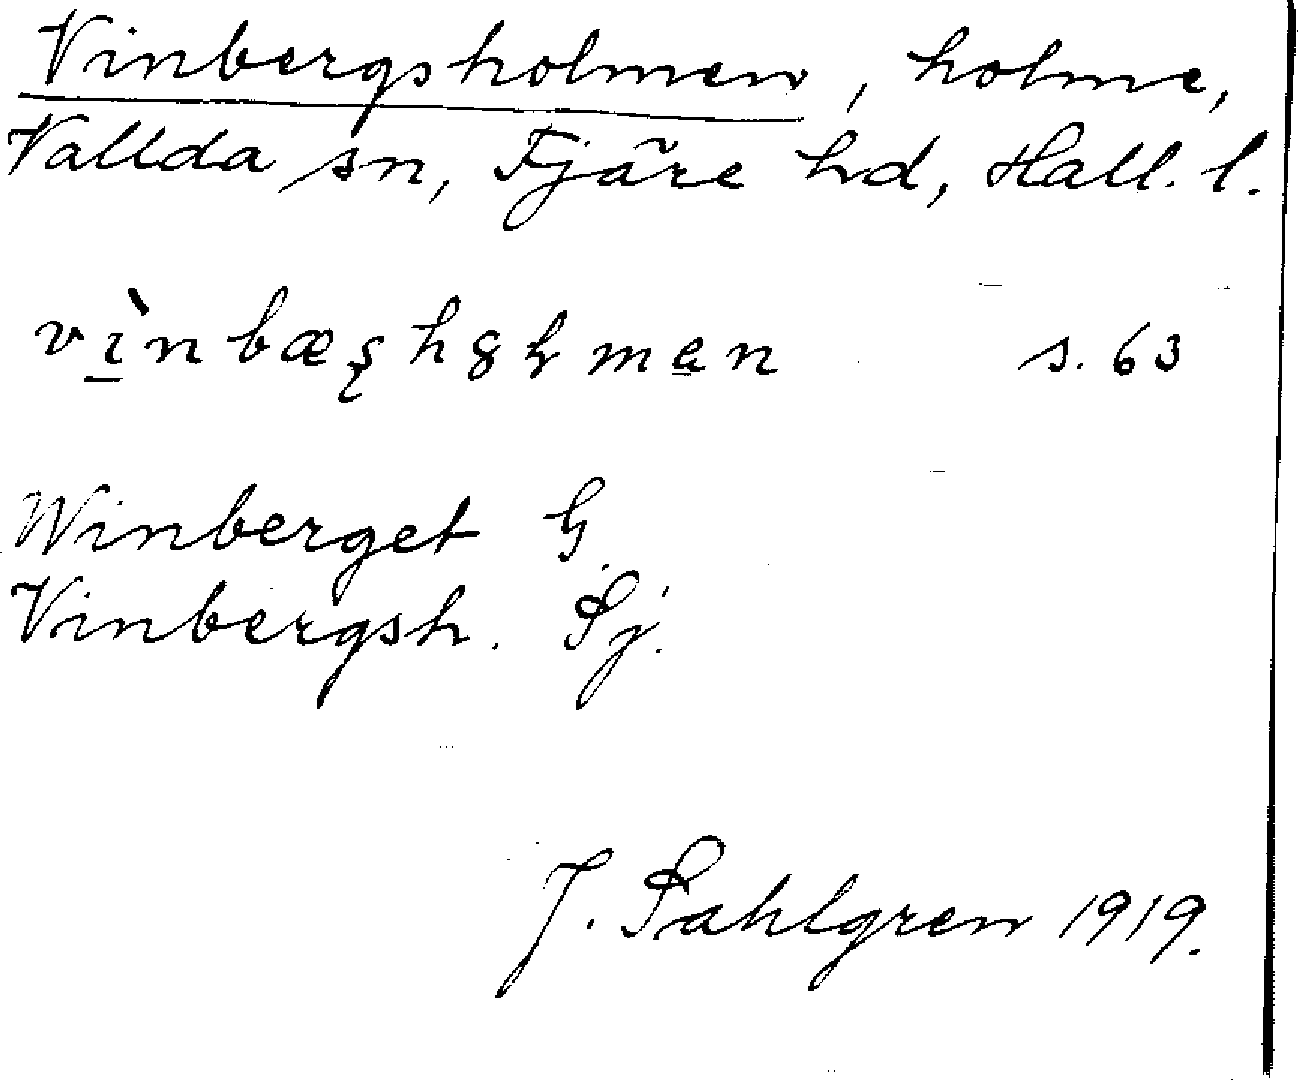 Vinbergsholmen, holme,
Vallda sn, Fjäre hd, Hall. l.
s. 63
Winberget G
Vinbergsh. Sj.
J. Sahlgren 1919.